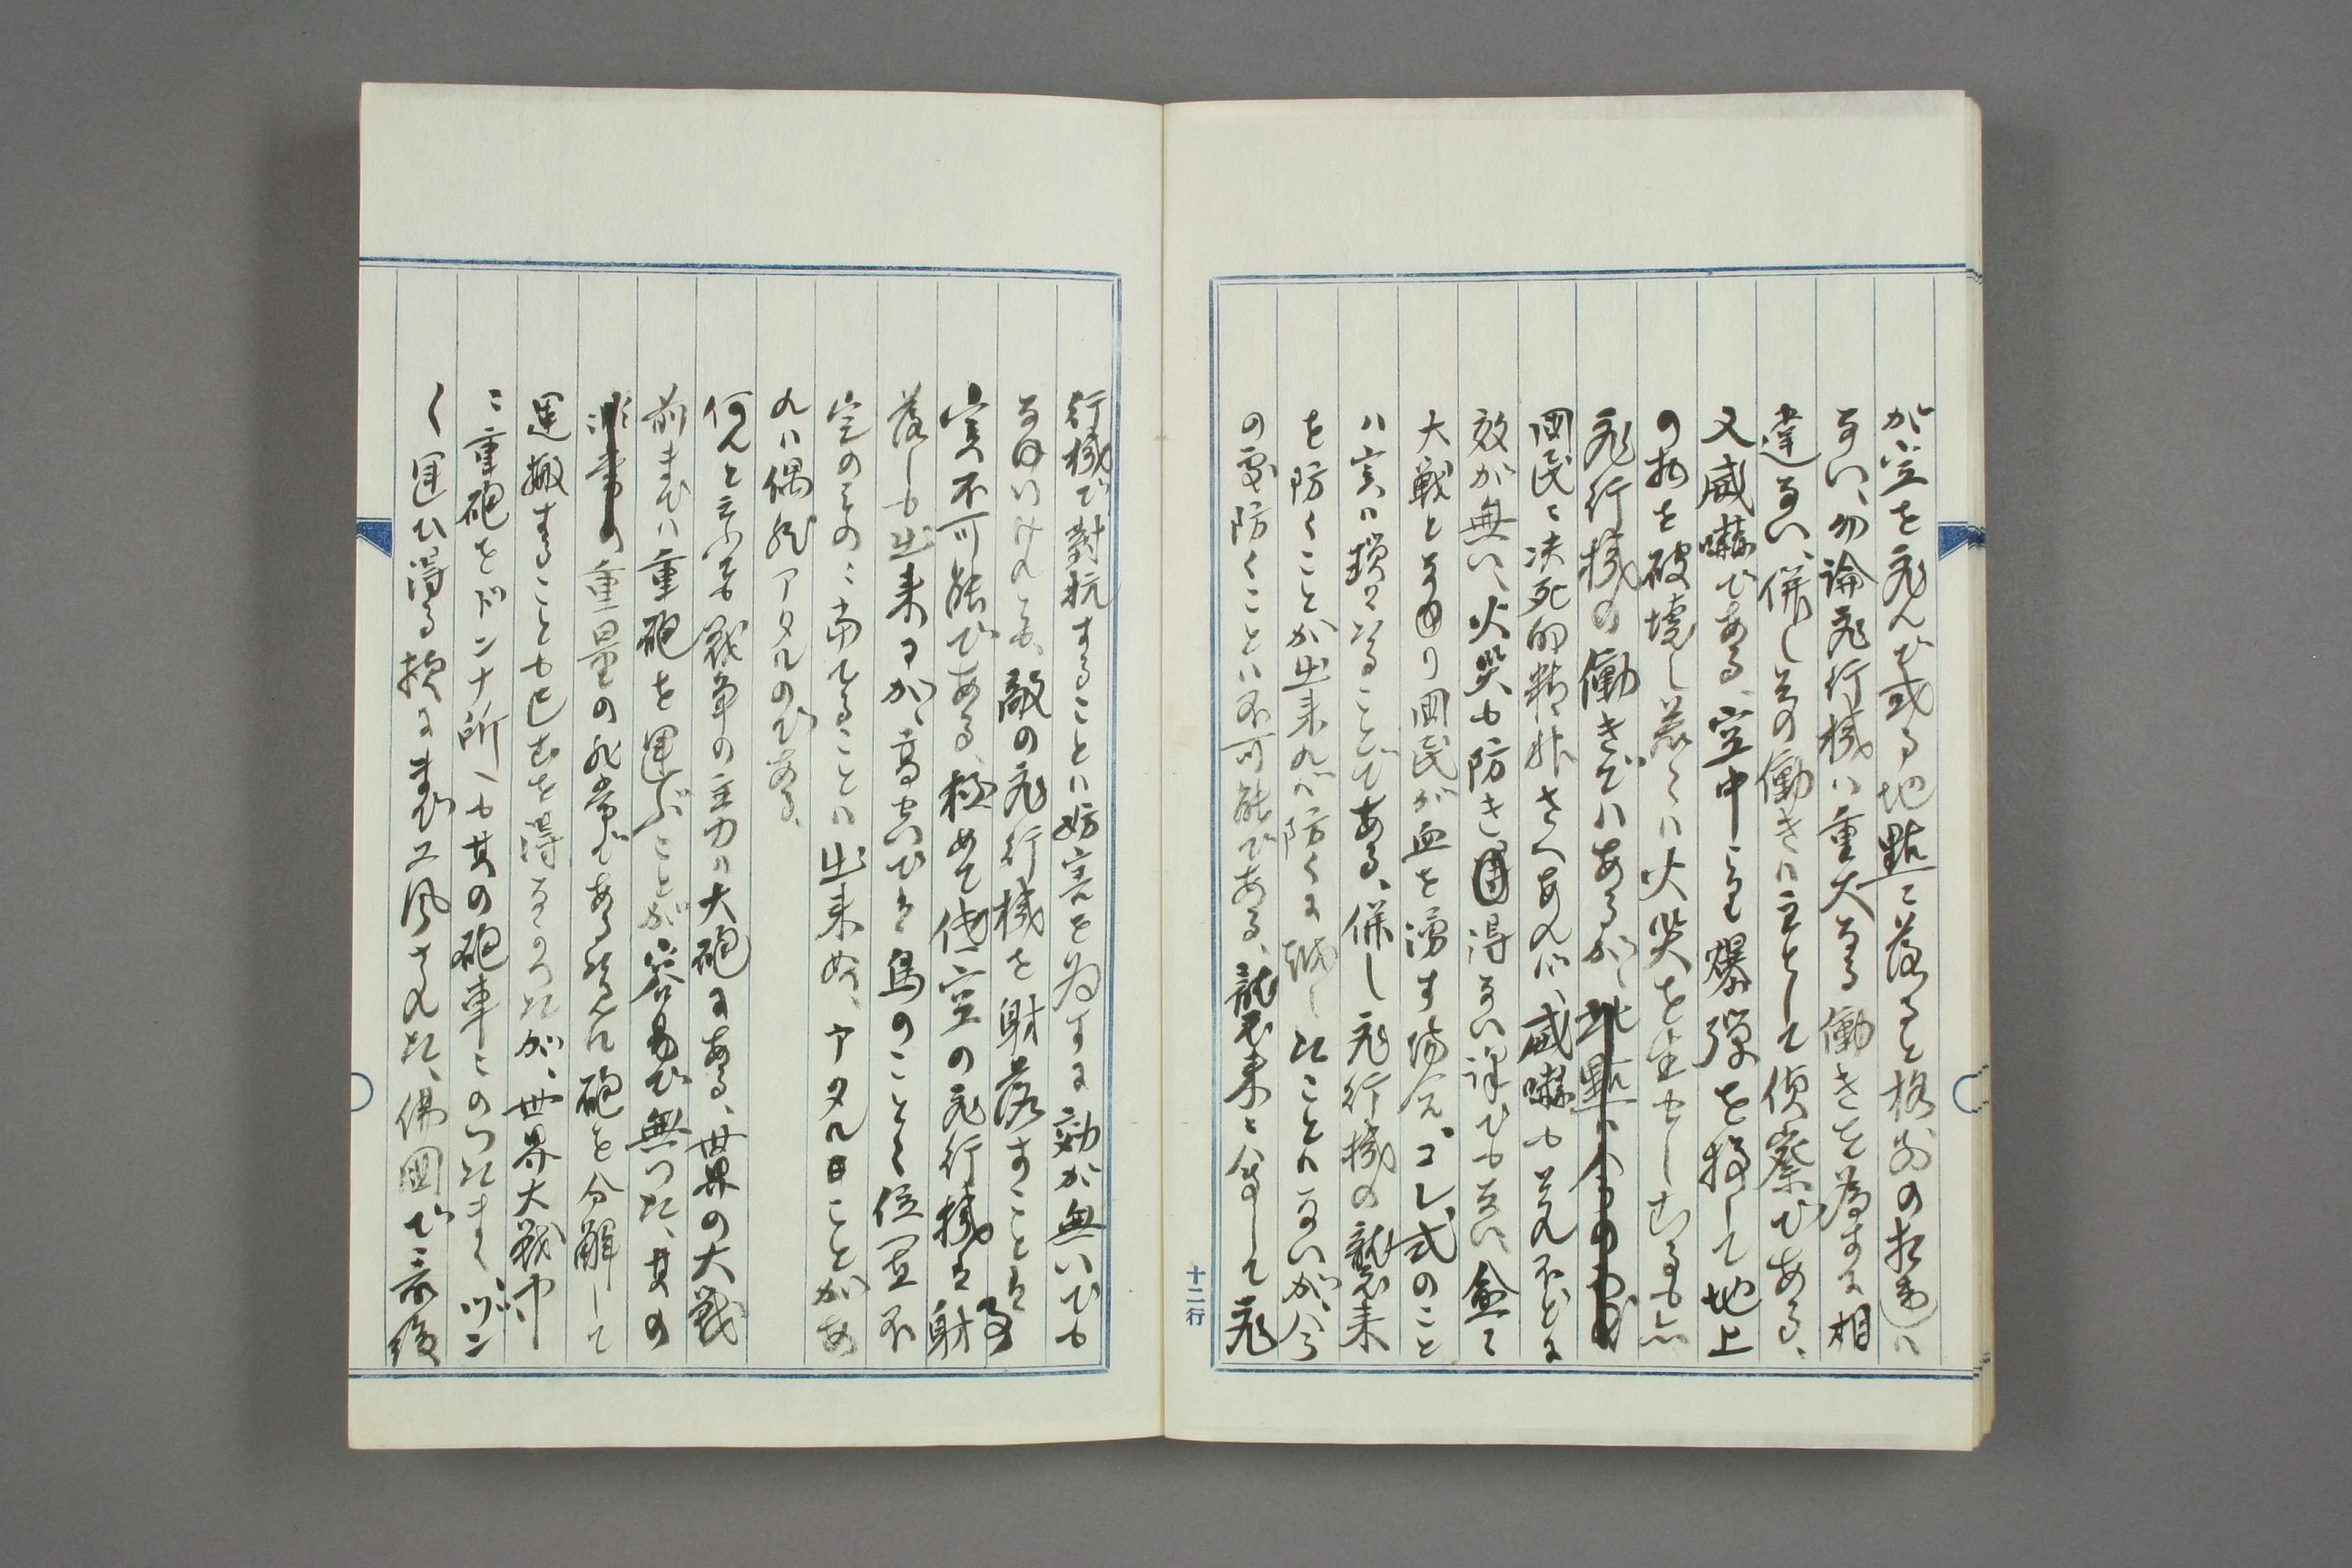 が空を飛んで或る地點に落ると格別の相違は
ない、勿論飛行機は重大なる働きを為すに相
違ない、併しその働きは主として偵察である、
又威嚇である、空中から爆弾を投して地上
の物を破壊し若くは火災を生せしむるも
飛行機の働きではあるが、此點は
国民に決死的精神さへあれバ、威嚇も
效が無い、火災も防き得ない譯でも
大戦となり国民が血を湧す場合、コレ式のこと
ハ実ハ瑣々たることである、併し飛行機の襲来
を防くことが出来れバ防くに越したことハないが、今
の處防くことハ不可能である、襲来と して飛
十二行
行機で対抗することハ妨害を為すに効か無いでも
なけれども、敵の飛行機を射落すことは
実不可能である、極めて低空の飛行機は射
落しも出来るが、高空では鳥のことく位置不
定のものに当てることハ出来ぬ、アタルことがあ
れハ偶然アタルのである、
何んと云ふても戦争の主力は大砲にある、世界の大戦
前まてハ重砲を運ぶことが容易で無つた、其の
重量の非常である為めに砲を分解して
運搬することも已むを得なかつたが、世界大戦中
に重砲をドンナ所へも其の砲車にのつたまゝズン
〱運ひ得る様にまで工風された、佛国で最後